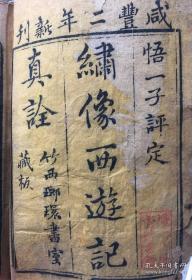 咸豐二年新刊
悟一子評定
繡像西遊記
真詮
竹西瑯環書室
藏板